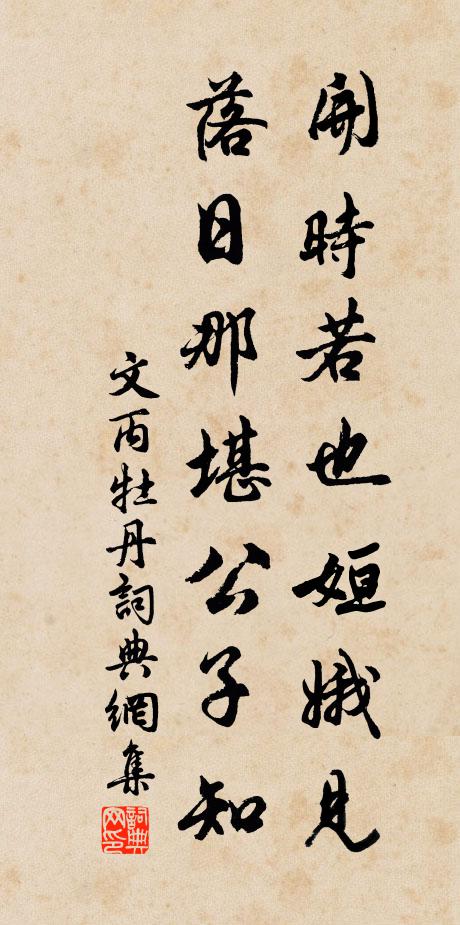 開時若也姮娥見
落日那堪公子知
文丙牡丹詞典網集
詞典網印